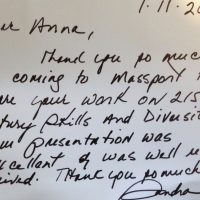 1.11.20
ear Anna,
Thank you so much
coming to Massport
are your work on 21s
tury Skills And Diversit
r Presentation was
cellent & was well re
ived. Thank you so much
Sandra